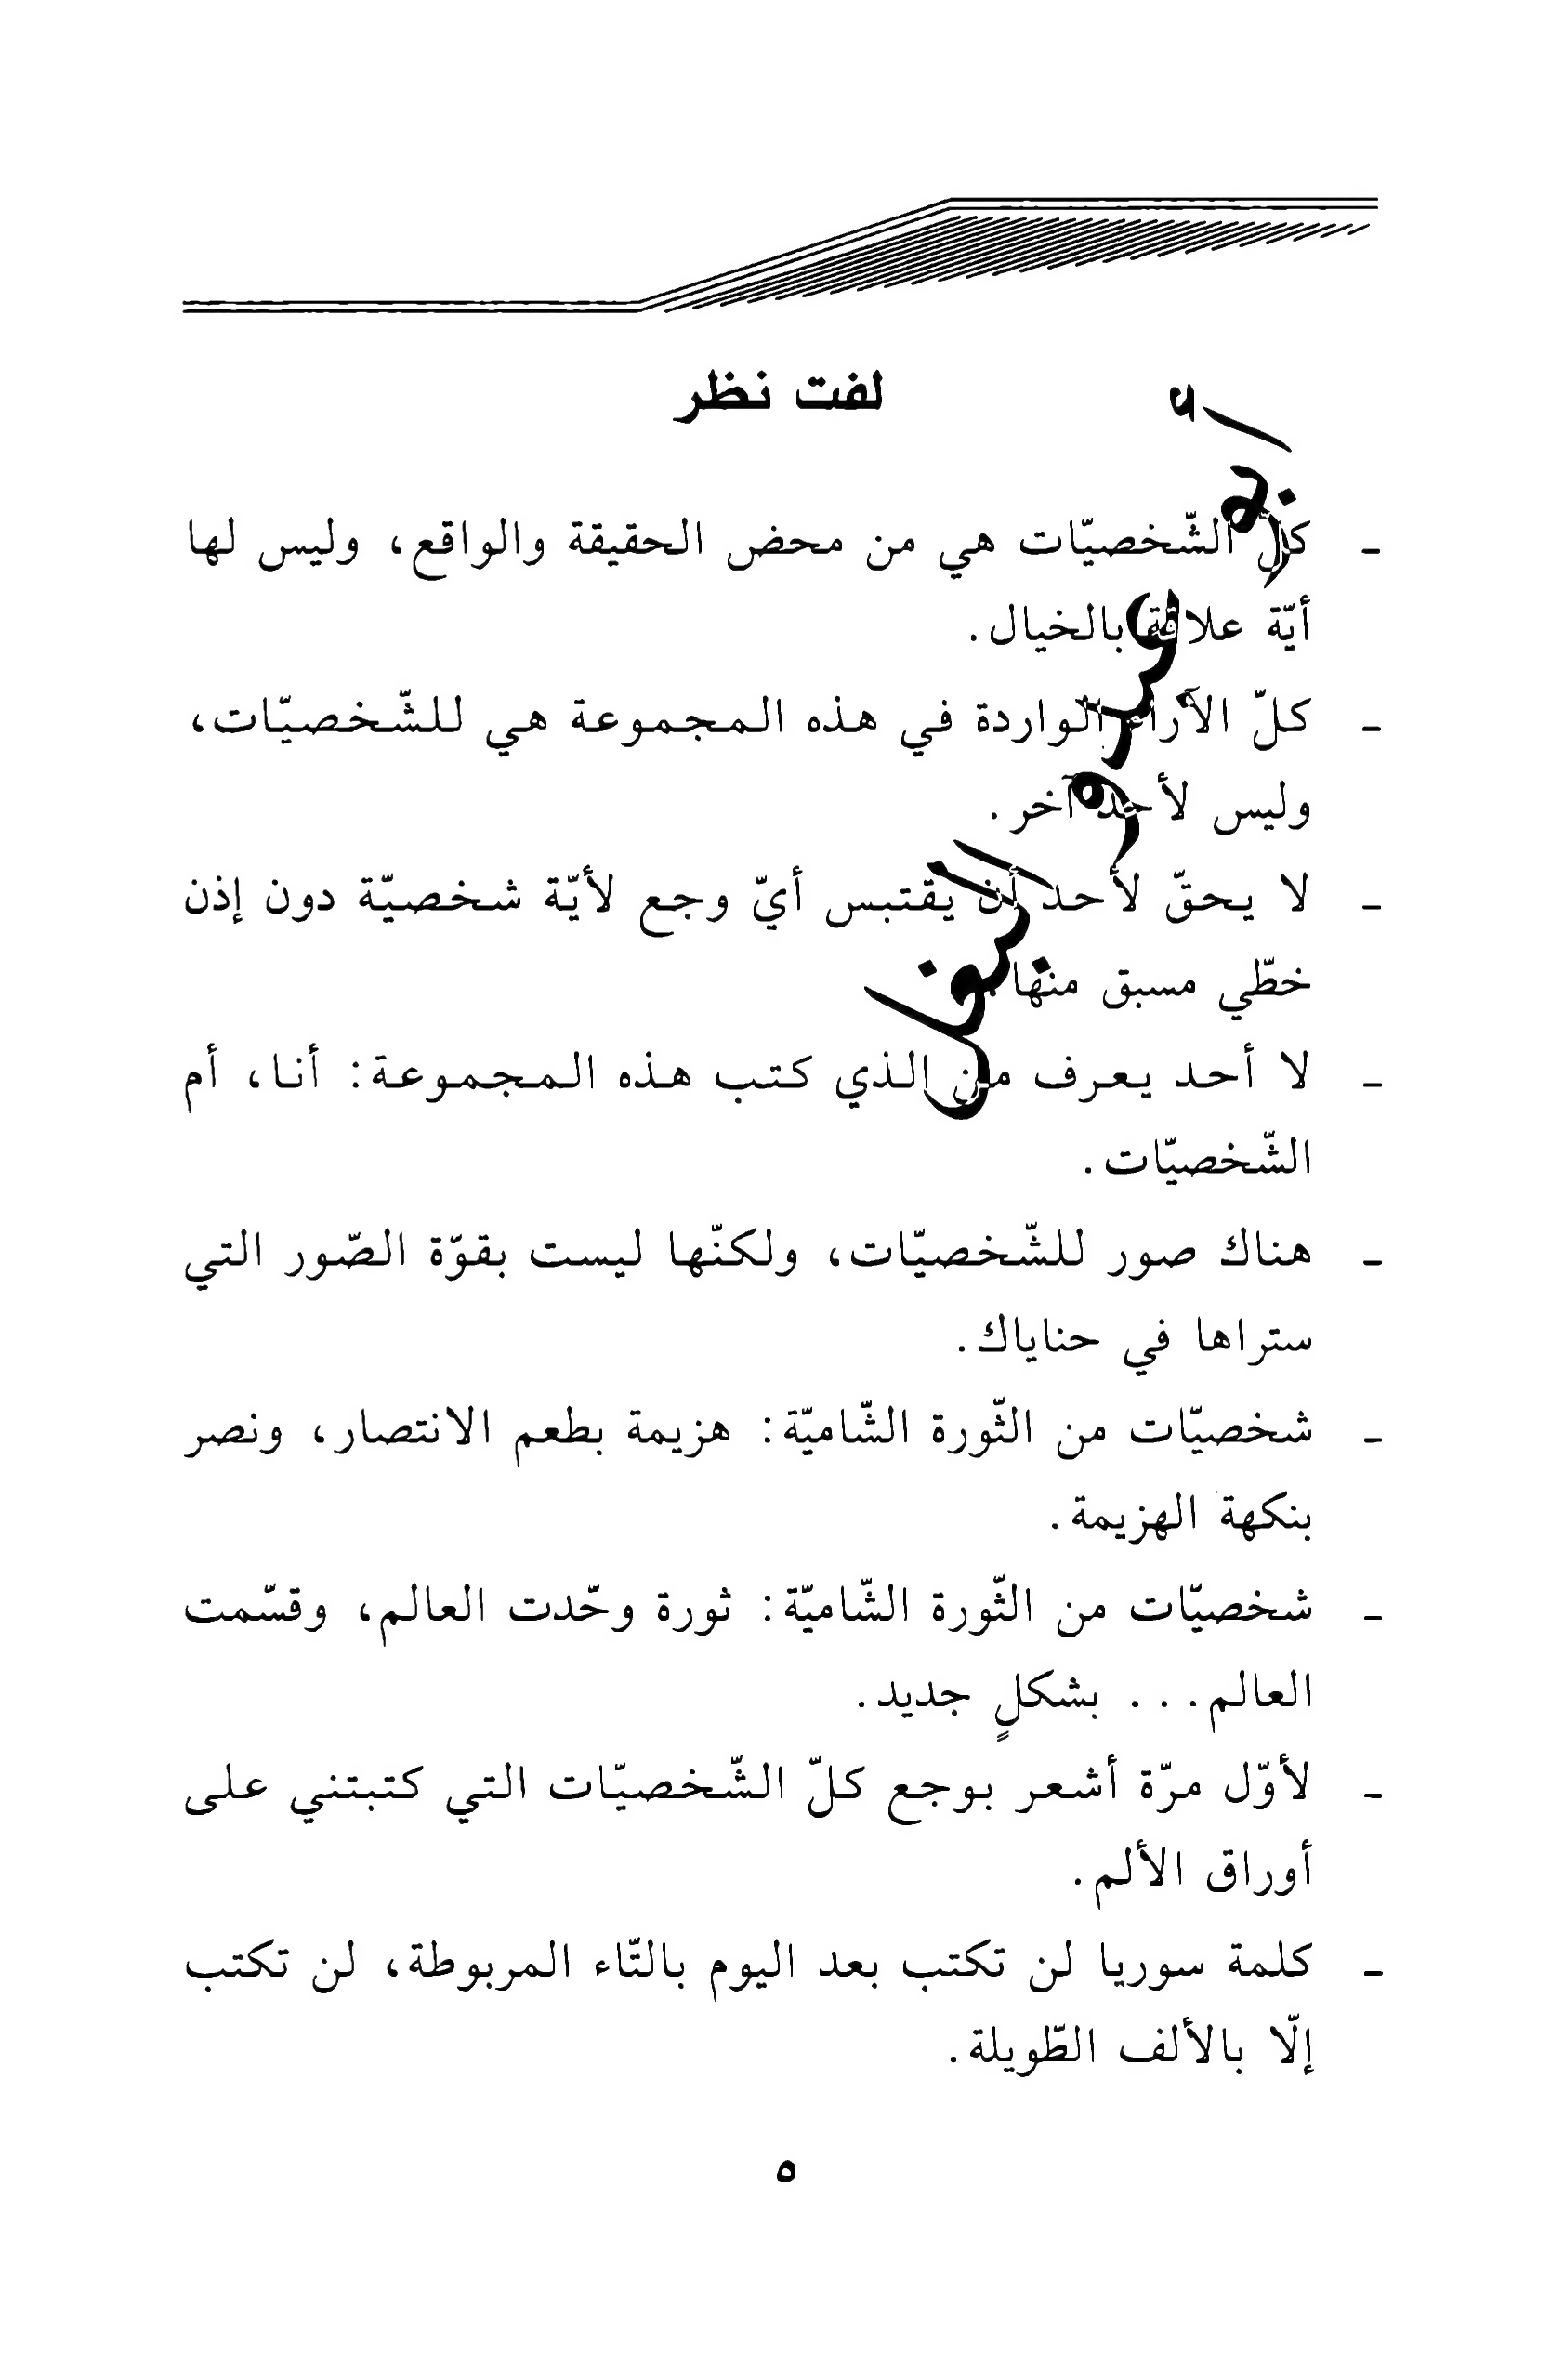 لفت نظر
ـ كلّ الشّخصيّات هي من محض الحقيقة والواقع، وليس لها
أيّة علاقة بالخيال.
ـ كلّ الآراء الواردة في هذه المجموعة هي للشّخصيّات،
وليس لأحد آخر.
ـ لا يحقّ لأحد أن يقتبس أيّ وجع لأيّة شخصيّة دون إذن
خطّي مسبق منها.
ـ لا أحد يعرف من الذي كتب هذه المجموعة: أنا، أم
الشّخصيّات.
ـ هناك صور للشّخصيّات، ولكنّها ليست بقوّة الصّور التي
ستراها في حناياك.
ـ شخصيّات من الثّورة الشّاميّة: هزيمة بطعم الانتصار، ونصر
بنكهة الهزيمة.
ـ شخصيّات من الثّورة الشّاميّة: ثورة وحّدت العالم، وقسّمت
العالم... بشكلٍ جديد.
ـ لأوّل مرّة أشعر بوجع كلّ الشّخصيّات التي كتبتني على
أوراق الألم.
ـ كلمة سوريا لن تكتب بعد اليوم بالتّاء المربوطة، لن تكتب
إلّا بالألف الطّويلة.
٥
أبو عبدو البغل